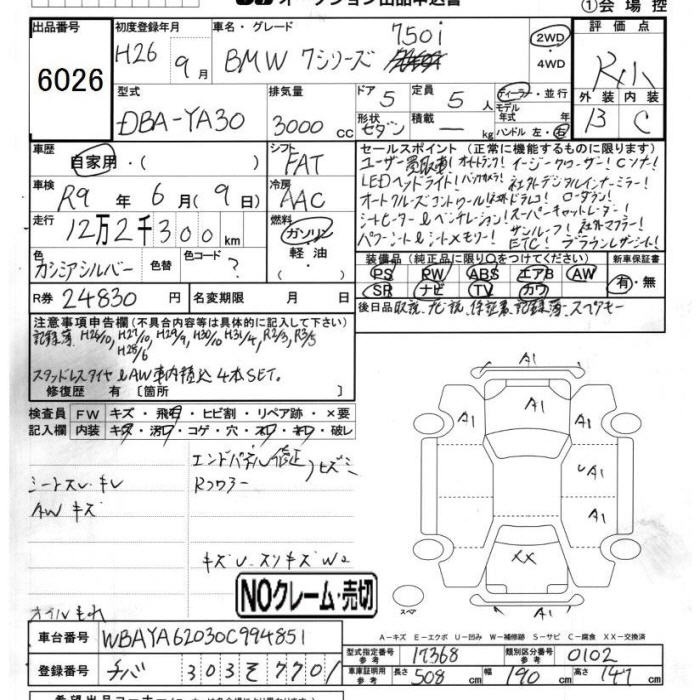 オークション出品申込書
①会場控
出品番号 初度登録年月 車名・グレード 評価点
6026
H26年9月
BMW 7シリーズ 750i
2WD・4WD
R小
外装 内装
B C
型式 排気量 ドア 定員 ディーラー・並行
DBA-YA30 3000cc 5 5人
形状 積載 モデル年式 年
セダン — kg ハンドル 左・右
車歴 シフト セールスポイント(正常に機能するものに限ります)
自家用・( ) FAT
LEDヘッドライト!バックカメラ!社外デジタルインナーミラー!
車検 冷房
R9年6月(9日) AAC
シートヒーター&ベンチレーション!スーパーキャットレーダー!
走行 燃料
12万2千300km ガソリン・軽油
パワーシート&シートメモリー!サンルーフ!社外マフラー!
ETC!ブラウンレザーシート!
色 色替 色コード
カシミアシルバー ? ( )
装備品(純正品に限り○をつけてください) 新車保証書
PS PW ABS エアB AW
SR ナビ TV カワ
有・無
R券 24830円 名変期限 月 日
後日品 取説、ナビ説、保証書、記録簿、スペアキー
注意事項申告欄(不具合内容等は具体的に記入して下さい)
記録簿 H26/10、H27/10、H29/9、H30/10、H31/4、R2/3、R3/5
H28/6
スタッドレスタイヤ&AW車内積込4本SET。
修復歴 有〔箇所 〕
検査員記入欄
FW キズ・飛石・ヒビ割・リペア跡・×要
内装 キズ・汚れ・コゲ・穴・破レ
エンドパネル修正
シートスレ・キレ Rコワラー
AWキズ
キズU、スリキズW2
NOクレーム・売切
オイルもれ
A1
A1
A1 A1
UA1
A1
XX
A1
スペア
A-キズ E-エクボ U-凹み W-補修跡 S-サビ C-腐食 XX-交換済
車台番号 WBAYA62030C994851
型式指定番号 参考 17368 類別区分番号 参考 0102
登録番号 チバ 303 そ 7701
車庫証明用 参考 長さ 508 cm 幅 190 cm 高さ 147 cm